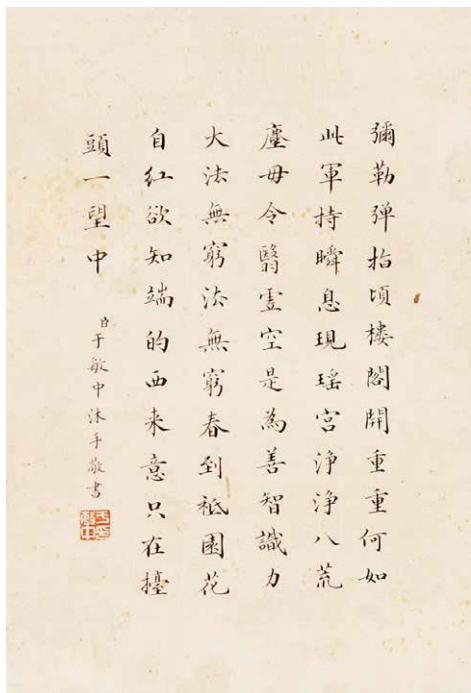 彌勒弹指頃樓閣開重重何如
此軍持瞬息現瑶宮浄浄八荒
塵毋令翳虚空是為善智識力
大法無窮法無窮春到祗園花
自紅欲知端的西来意只在擡
頭一望中
臣于敏中沐手敬書